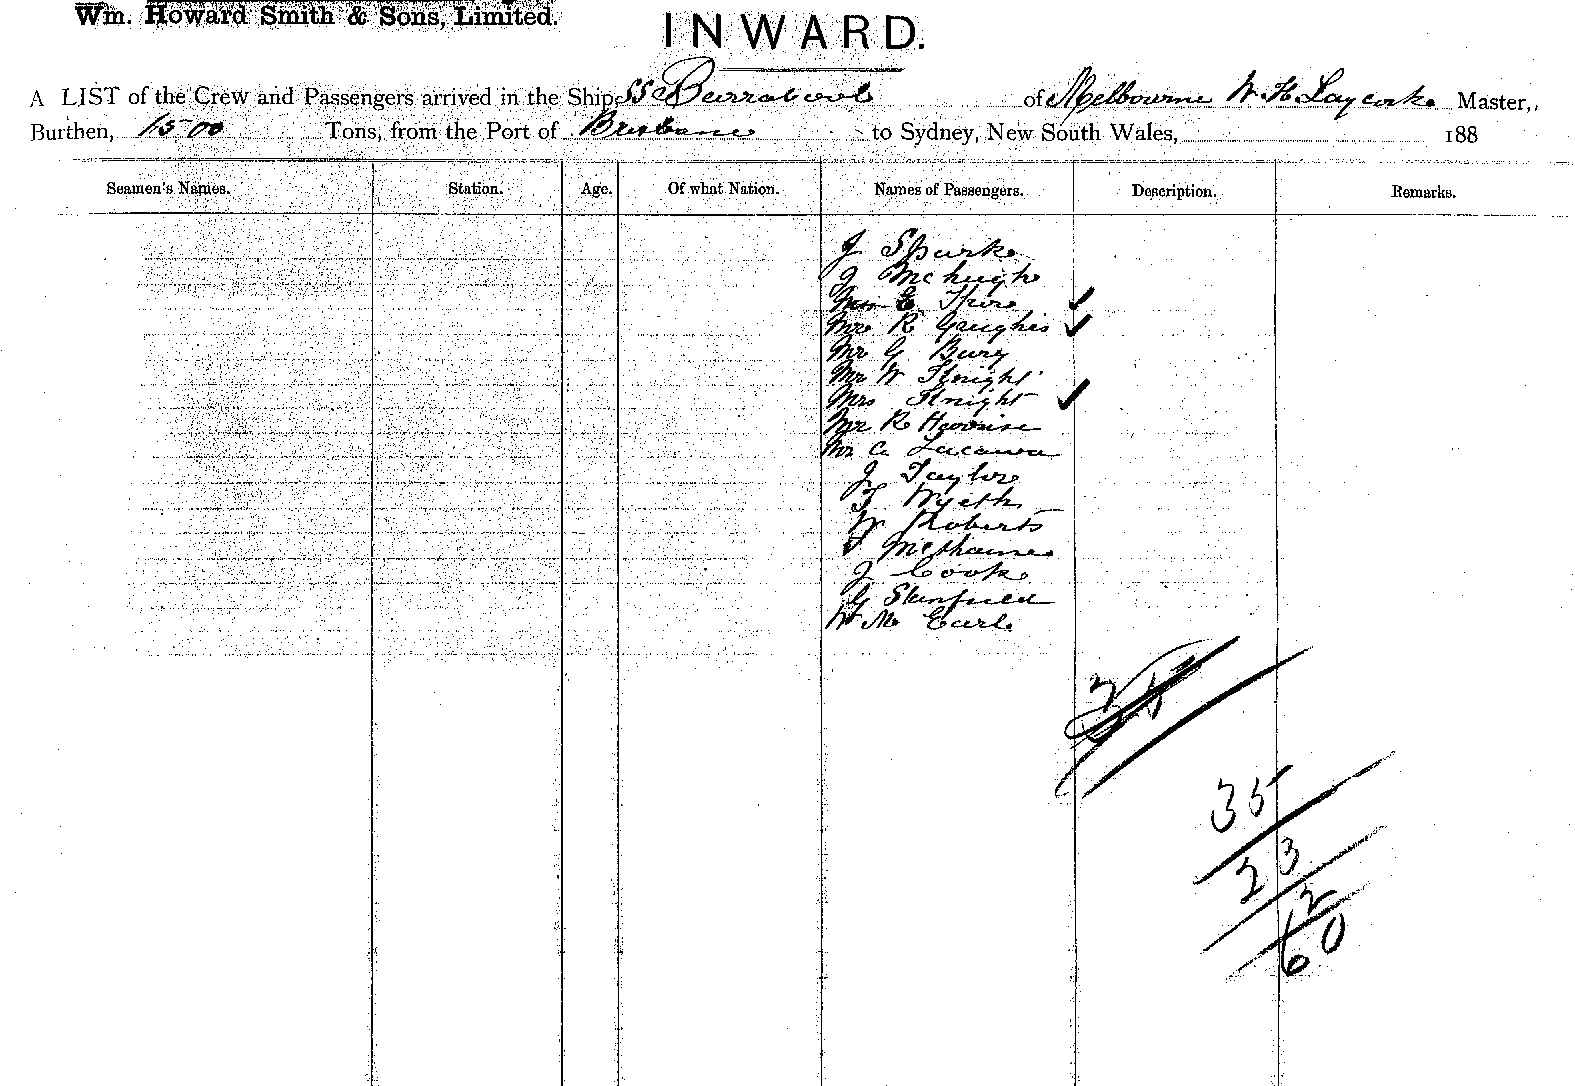 Wm. Howard Smith & Sons, Limited.
INWARD.
A LIST of the Crew and Passengers arrived in the Ship SS Burrabool of Melbourne W H Laycock Master,
Burthen, 1500 Tons, from the Port of Brisbane to Sydney, New South Wales, 188
Seamen's Names. Station. Age. Of what Nation. Names of Passengers. Description. Remarks.
J Spurke
J McHugh
E
Mr R
Mr G Bury
Mr W Knight
Mrs Knight
Mr R
Mr C
J Taylor
T Wyeth
W Roberts
J
J Cook
G Stanfield
W M Earl
35
23
2
60